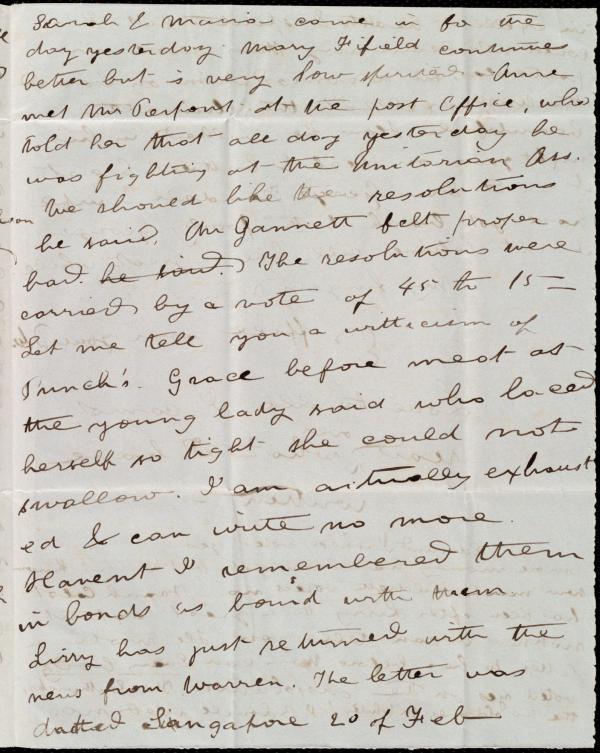 Sarah & Maria come in for the
day yesterday. Mary Fifield continues
better but is very low spirited. Anne
met Mr Perpont at the post Office, who
told her that all day yesterday he
was fighting at the Unitarian Ass.
We should like the resolutions
he said, Mr Gannett felt proper
bad. he said. The resolutions were
carried by a vote of 45 to 15 —
Let me tell you a witticism of
Punch's. Grace before meat as
the young lady said who laced
herself so tight she could not
swallow. I am actually exhaust
ed & can write no more.
Havent I remembered them
in bonds as bound with them
Lizzy has just returned with the
news from Warren. The letter was
datted Singapore 20 of Feb